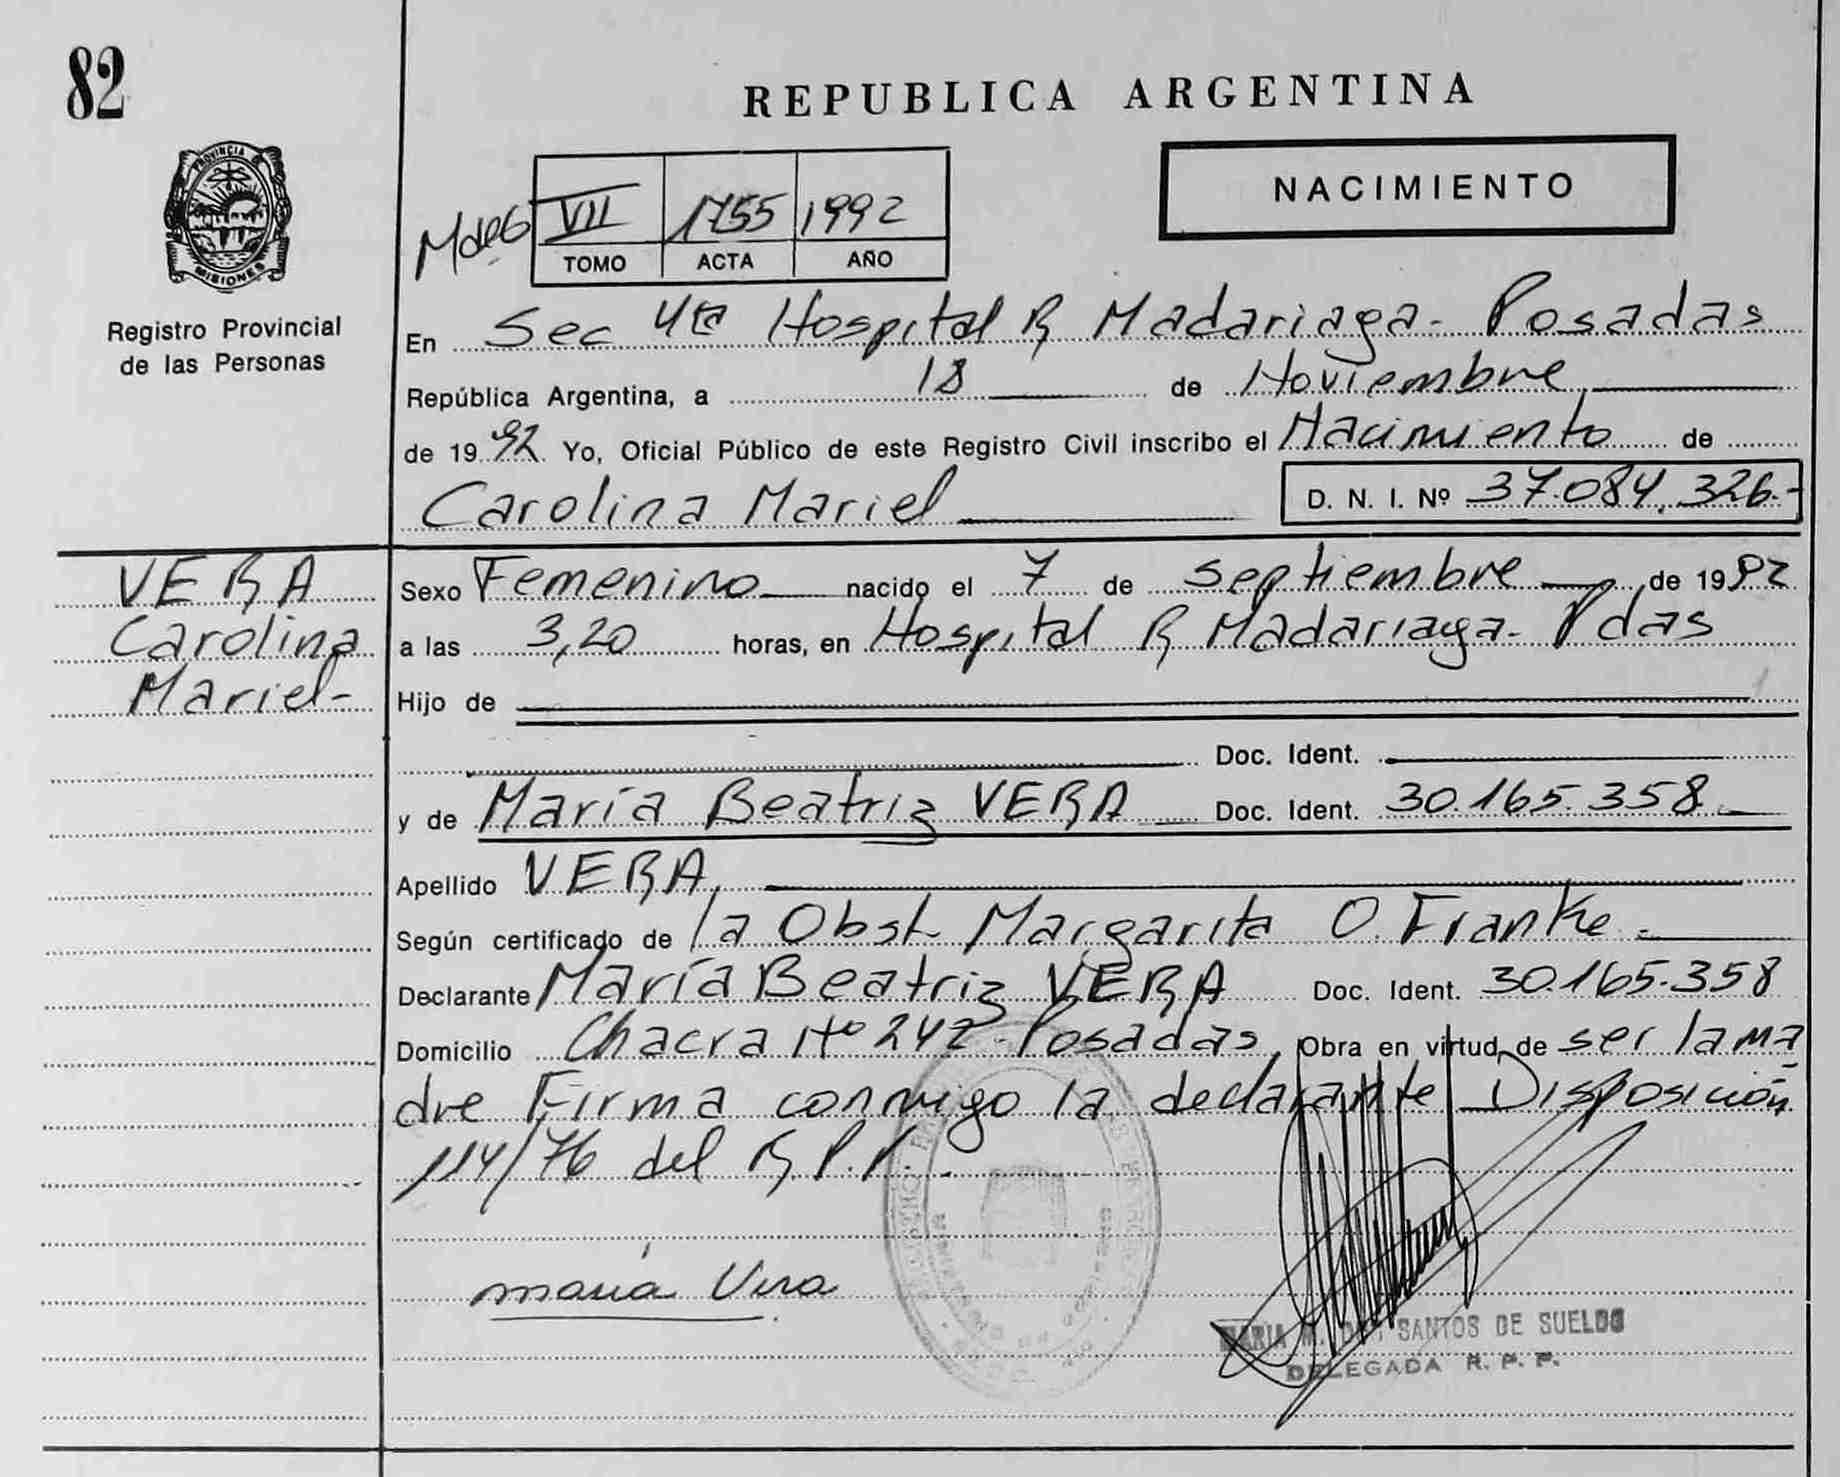 82
REPUBLICA ARGENTINA
PROVINCIA
MISIONES
Registro Provincial
de las Personas
NACIMIENTO
VII 1755 1992
TOMO ACTA AÑO
En Sec 4ta Hospital R Madariaga - Posadas
República Argentina, a 18 de Noviembre
de 1992 Yo, Oficial Público de este Registro Civil inscribo el Nacimiento de
Carolina Mariel D. N. I. Nº 37.084.326.-
VERA
Carolina
Mariel-
Sexo Femenino nacido el 7 de septiembre de 1992
a las 3,20 horas, en Hospital R Madariaga - Pdas
Hijo de
Doc. Ident.
y de María Beatriz VERA Doc. Ident. 30.165.358
Apellido VERA
Según certificado de la Obst. Margarita O. Franke.
Declarante María Beatriz VERA Doc. Ident. 30.165.358
Domicilio Chacra Nº 242 - Posadas, Obra en virtud de ser la ma
dre Firma conmigo la declarante Disposición
114/76 del R.P.P.
maria Vera
MARIA M. DOS SANTOS DE SUELDO
DELEGADA R. P. P.